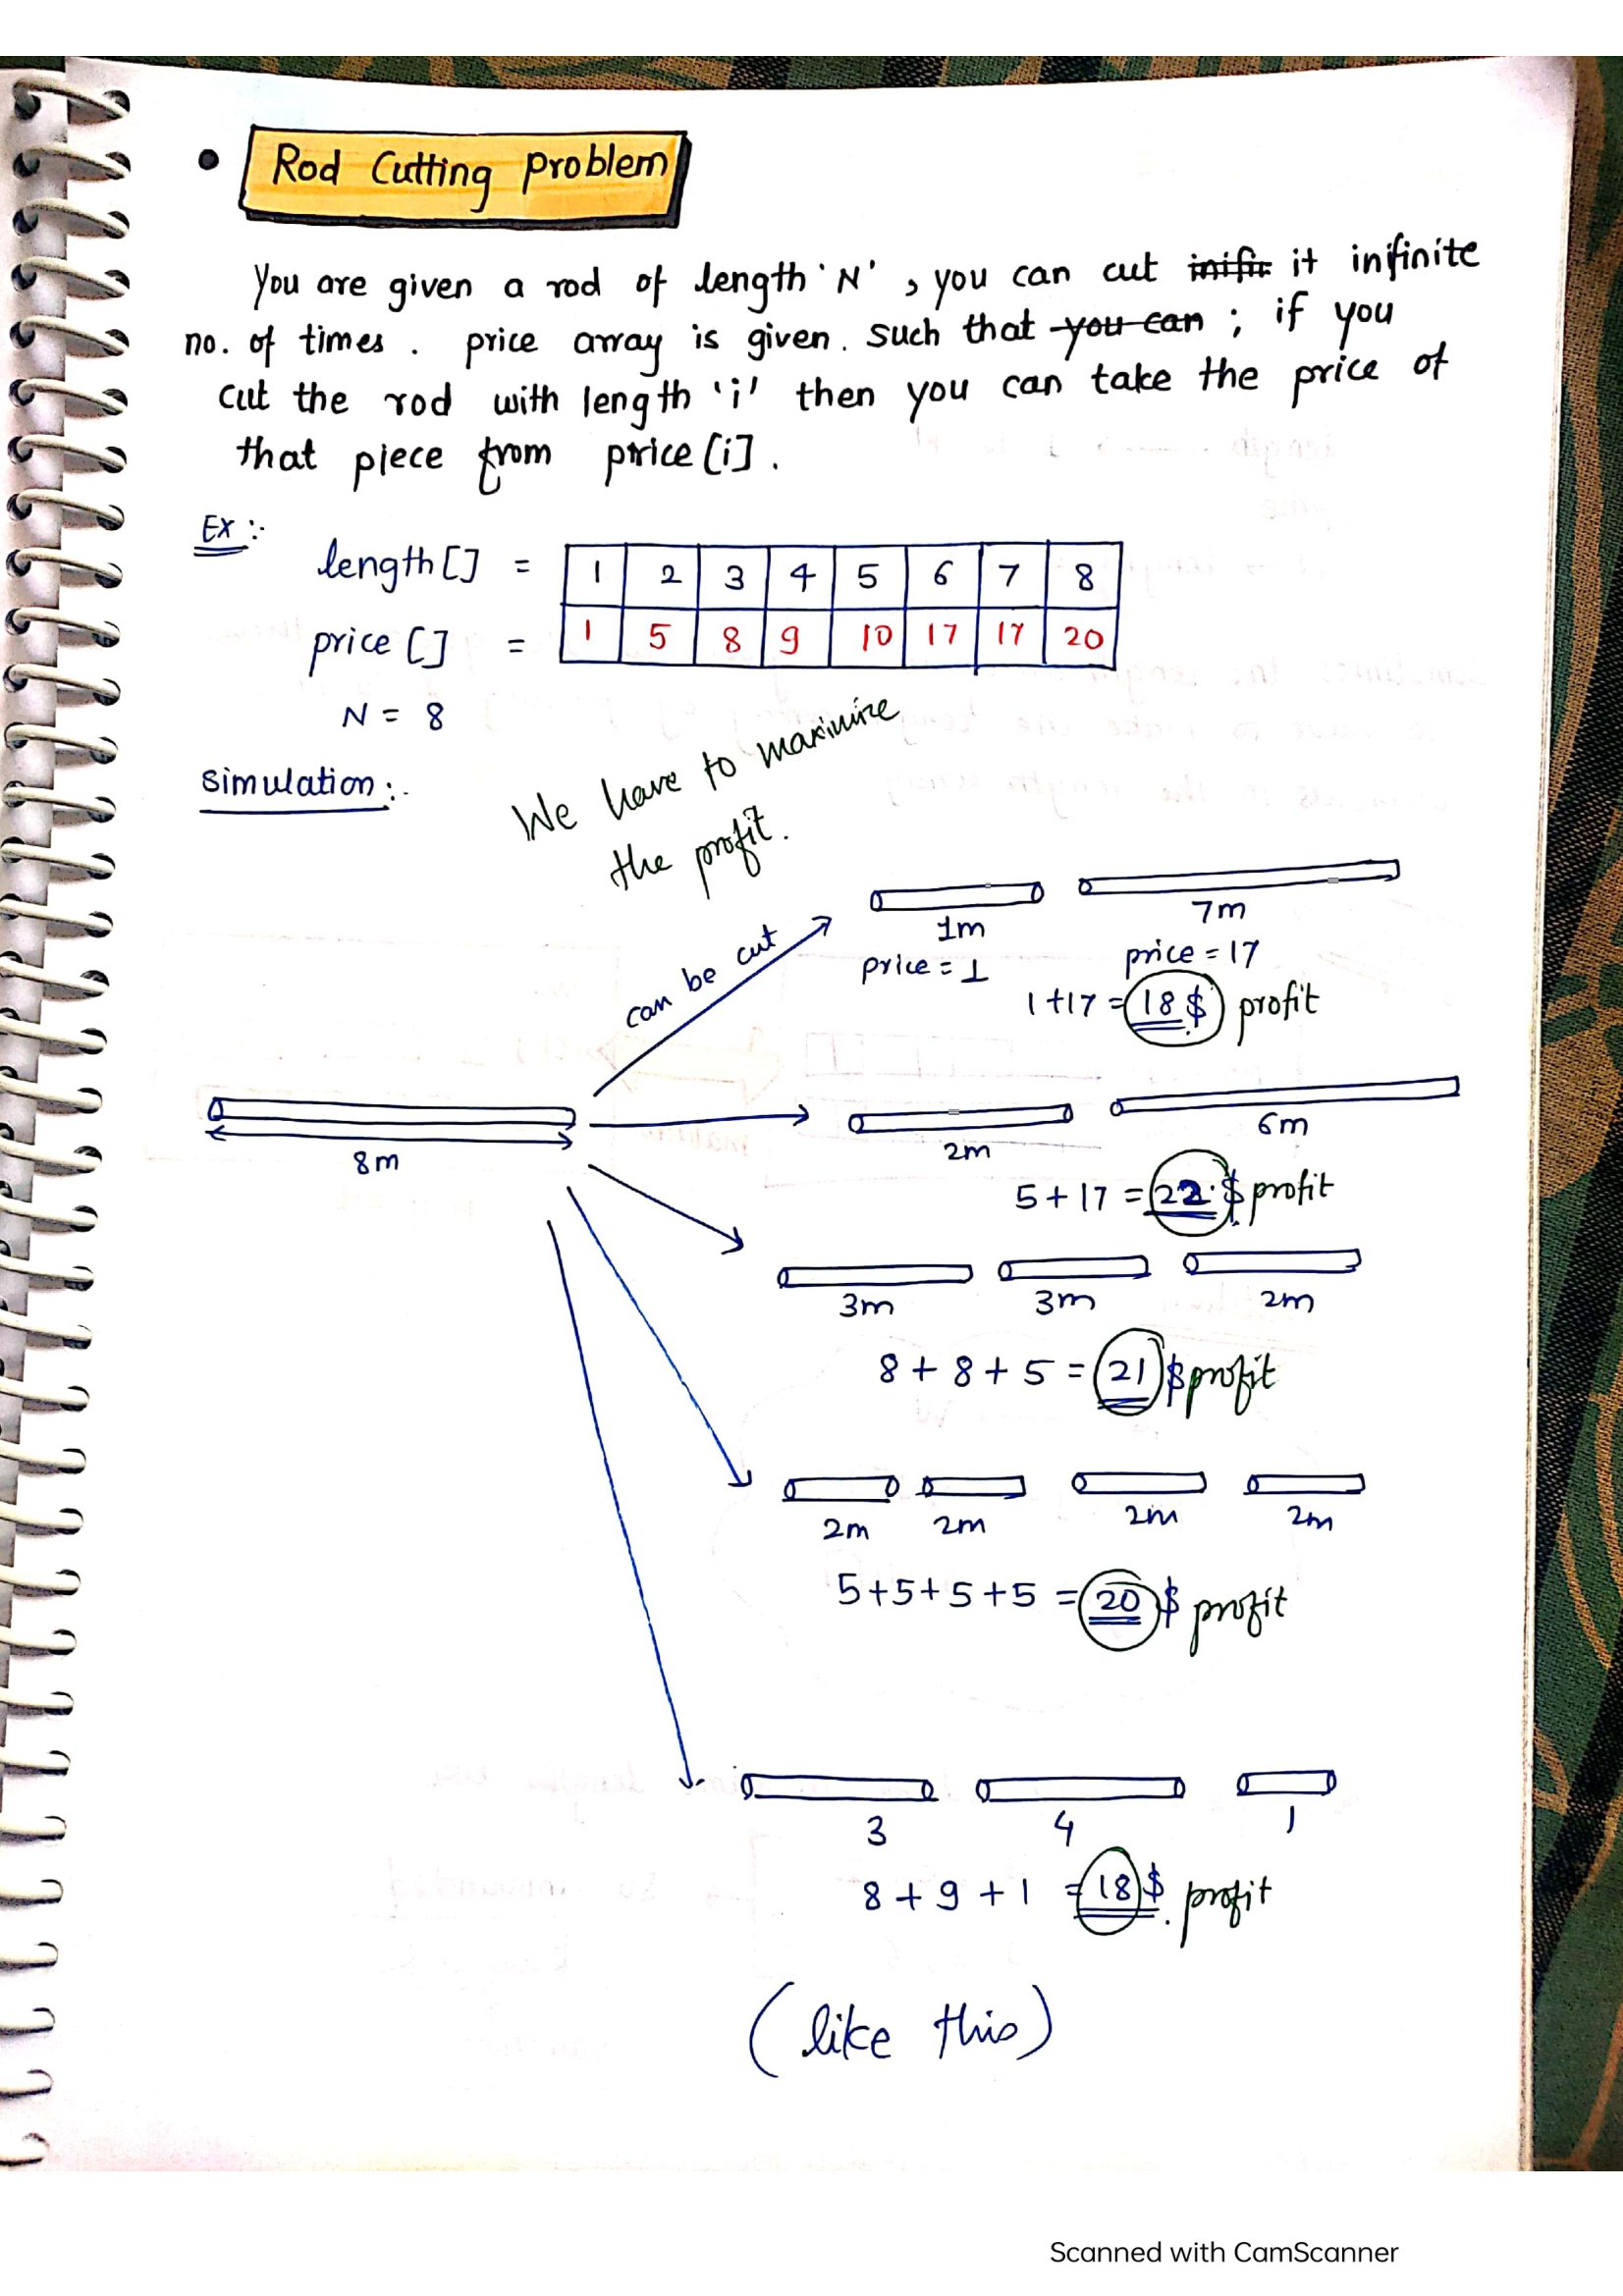 • Rod Cutting Problem
You are given a rod of length 'N', you can cut inifin it infinite
no. of times. price array is given. such that you can ; if you
cut the rod with length 'i' then you can take the price of
that piece from price[i].
Ex :-
length[] = 1 2 3 4 5 6 7 8
price[] = 1 5 8 9 10 17 17 20
N = 8
We have to maximize
the profit.
simulation :-
can be cut
1m 7m
price = 1 price = 17
1+17 = 18 $ profit
8m
2m 6m
5 + 17 = 22 $ profit
3m 3m 2m
8 + 8 + 5 = 21 $ profit
2m 2m 2m 2m
5+5+5+5 = 20 $ profit
3 4 1
8 + 9 + 1 = 18 $. profit
(like this)
Scanned with CamScanner